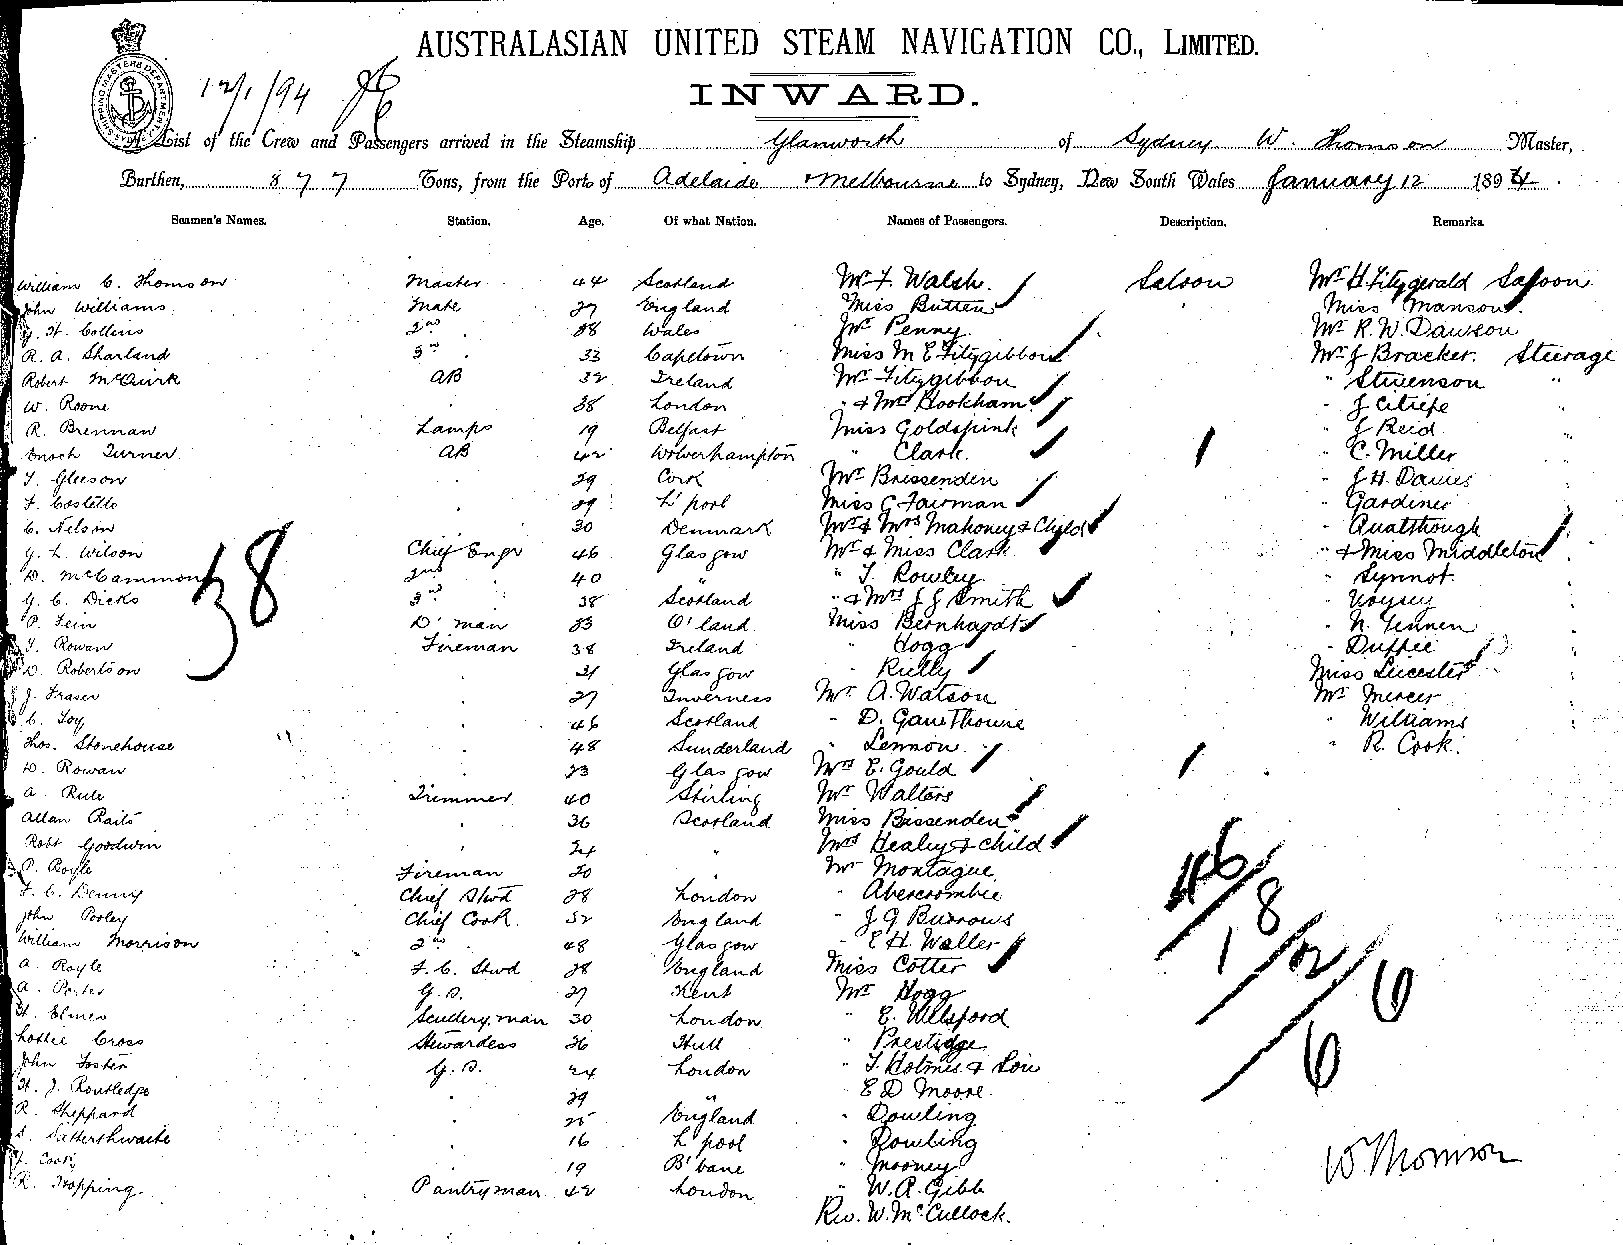 AUSTRALASIAN UNITED STEAM NAVIGATION CO., LIMITED.
12/1/94
INWARD.
A List of the Crew and Passengers arrived in the Steamship Glanworth of Sydney W. Thomson Master,
Burthen, 877 Tons, from the Port of Adelaide & Melbourne to Sydney, New South Wales January 12 1894
Seamen's Names. Station. Age. Of what Nation. Names of Passengers. Description. Remarks.
William C. Thomson Master 44 Scotland Mr F. Walsh. Saloon Mr H Fitzgerald Saloon
John Williams Mate 27 England Miss Butten Miss Manson
J. H. Collins 2nd 38 Wales Mr Penny Mr R. W. Dawson
R. A. Sharland 3rd 33 Capetown Miss M E Fitzgibbon Mr J Bracker. Steerage
Robert McQuirk AB 32 Ireland Mr Fitzgibbon " Stevenson "
W. Roone 38 London " & Mrs Hookham
R. Brennan Lamps 19 Belfast Miss Goldspink " J Reid
Enoch Turner AB 42 Wolverhampton " Clark. " C. Miller
T. Gleeson 29 Cork Mr Brissenden " J H. Davies
F. Costello 29 L'pool Miss C Fairman " Gardiner
C. Nelson 30 Denmark Mr & Mrs Mahoney & Child " Qualthough
G. L. Wilson Chief Engr 46 Glasgow Mr & Miss Clark " & Miss Middleton
D. McCammon 2nd 40 " " T. Rowley " Synnot
G. C. Dicks 3rd 38 Scotland " & Mrs J J Smith " Voysey
P. Fein D'man 33 Q'land Miss Bernhardt
T. Rowan Fireman 38 Ireland " Hogg " Duffie
D. Robertson 31 Glasgow " Rielly Miss Leicester
J. Fraser 27 Inverness Mr A. Watson Mr Mercer
C. Foy 46 Scotland " D. Gawthorne " Williams
Thos. Stonehouse 48 Sunderland " Lennon " R. Cook.
D. Rowan 23 Glasgow Mrs E. Gould
A. Rule Trimmer 40 Stirling Mr Walters
Allan Raits 36 Scotland Miss Bissenden
Robt Goodwin 24 " Mrs Healey & Child
P. Boyle Fireman 30 Mr Montague
F. C. Denny Chief Stwd 28 London " Abercrombie
John Pooley Chief Cook 52 England " J G Burrows
William Morrison 2nd 48 Glasgow " E H. Waller
A. Royle F. C. Stwd 28 England Miss Cotter
A. Porter G. S. 27 Kent Mr Hogg
H. Elmes Scullery man 30 London " E. Welsford
Lottie Cross Stewardess 36 Hull " Prestidge
John Foster G. S. 24 London " T. Holmes & Son
H. J. Routledge 29 " " E D Moore
R. Sheppard 25 England " Dowling
S. Satterthwaite 16 L'pool " Rowling
J. Cook 19 B'bane " Mooney
R. Topping Pantryman 42 London " W. R. Gibb
Rev. W. McCullock.
38
46
1 8
2 6
6
W Thomson